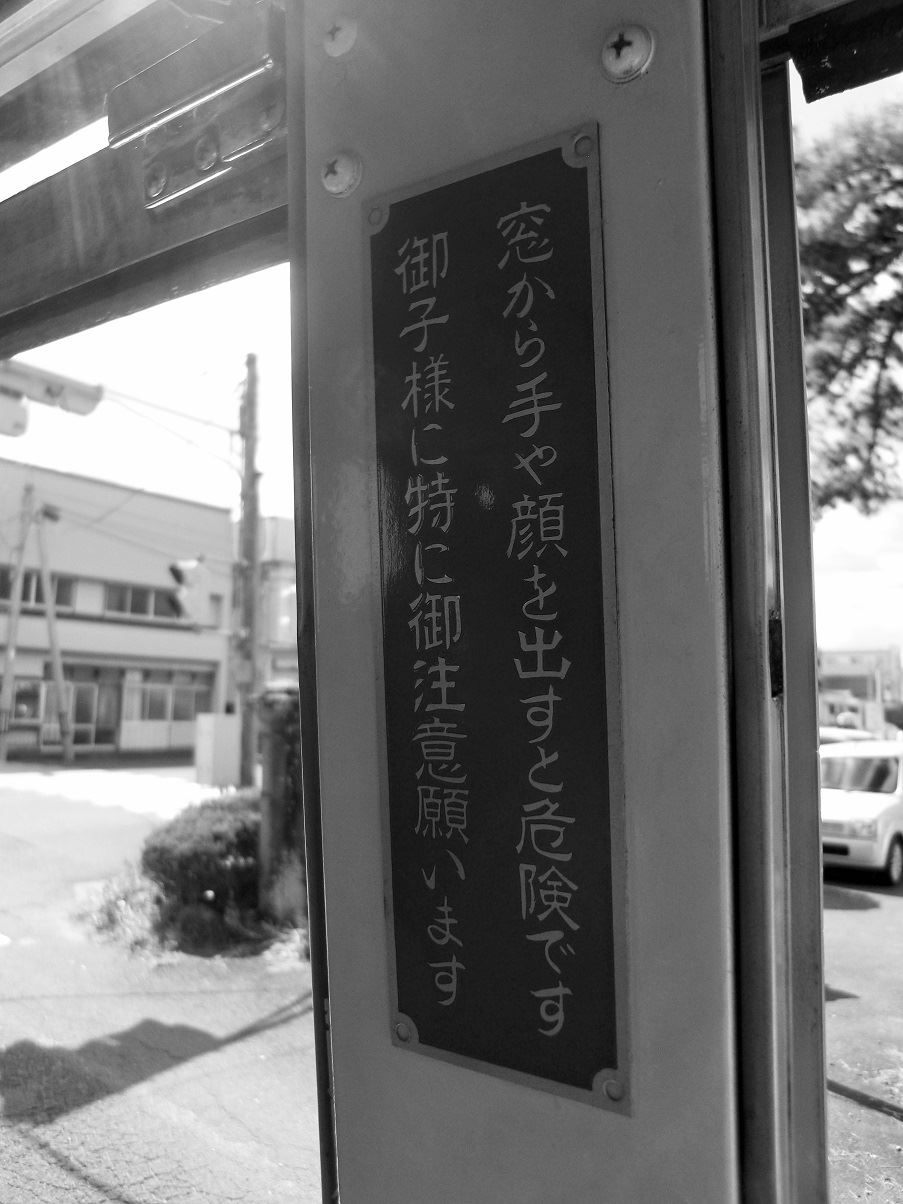 窓から手や顔を出すと危険です
御子様に特に御注意願います